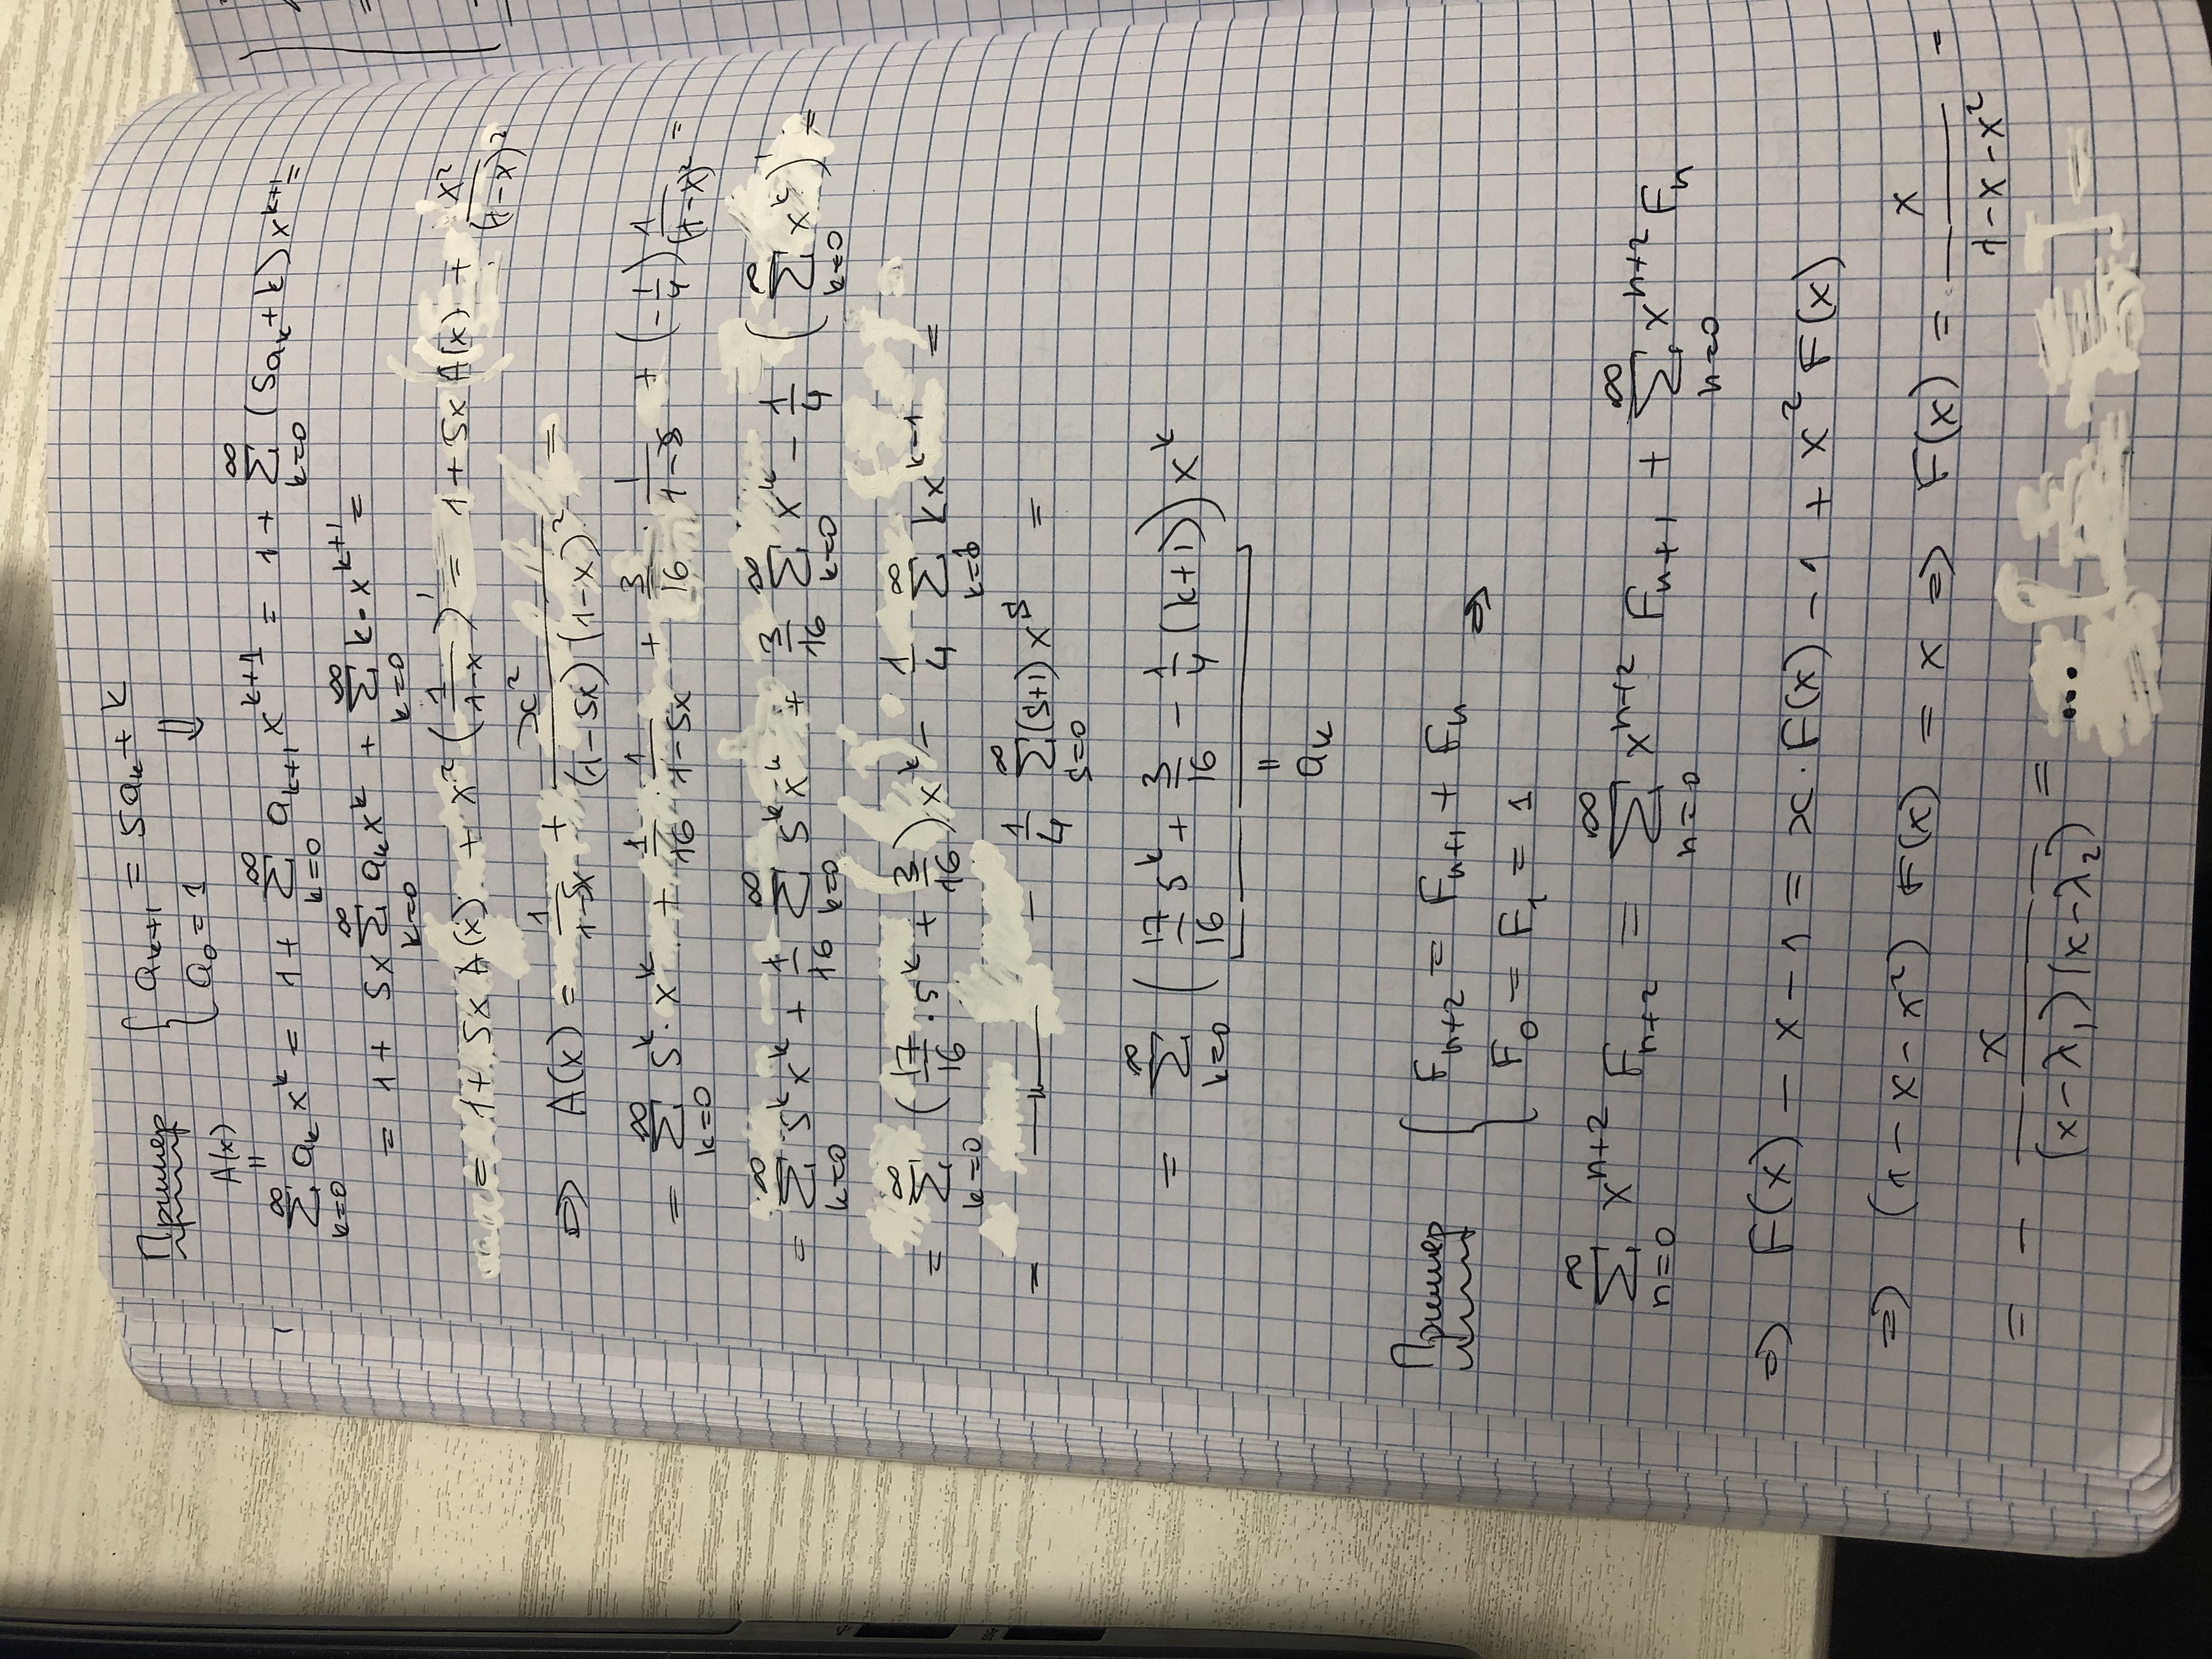 Пример { a_{k+1} = 5a_k + k
a_0 = 1 ⇓
A(x)
=
∑_{k=0}^{∞} a_k x^k = 1 + ∑_{k=0}^{∞} a_{k+1} x^{k+1} = 1 + ∑_{k=0}^{∞} (5a_k + k) x^{k+1} =
= 1 + 5x ∑_{k=0}^{∞} a_k x^k + ∑_{k=0}^{∞} k · x^{k+1} =
= 1 + 5x A(x) + x^2 (1/(1-x))' = 1 + 5x A(x) + x^2/(1-x)^2
⇒ A(x) = 1/(1-5x) + x^2/((1-5x)(1-x)^2) =
= ∑_{k=0}^{∞} 5^k · x^k + 1/16 · 1/(1-5x) + 3/16 · 1/(1-x) + (-1/4) 1/(1-x)^2 =
= ∑_{k=0}^{∞} 5^k x^k + 1/16 ∑_{k=0}^{∞} 5^k x^k + 3/16 ∑_{k=0}^{∞} x^k - 1/4 (∑_{k=0}^{∞} x^k)' =
= ∑_{k=0}^{∞} (17/16 · 5^k + 3/16) x^k - 1/4 ∑_{k=1}^{∞} k x^{k-1} =
= —〃— - 1/4 ∑_{s=0}^{∞} (s+1) x^s =
= ∑_{k=0}^{∞} (17/16 5^k + 3/16 - 1/4 (k+1)) x^k
=
a_k
Пример { F_{n+2} = F_{n+1} + F_n
F_0 = F_1 = 1 ⇒
∑_{n=0}^{∞} x^{n+2} F_{n+2} = ∑_{n=0}^{∞} x^{n+2} F_{n+1} + ∑_{n=0}^{∞} x^{n+2} F_n
⇒ F(x) - x - 1 = x · F(x) - 1 + x^2 F(x)
⇒ (1 - x - x^2) F(x) = x ⇒ F(x) = x/(1-x-x^2) =
= - x/((x-λ_1)(x-λ_2)) = ...